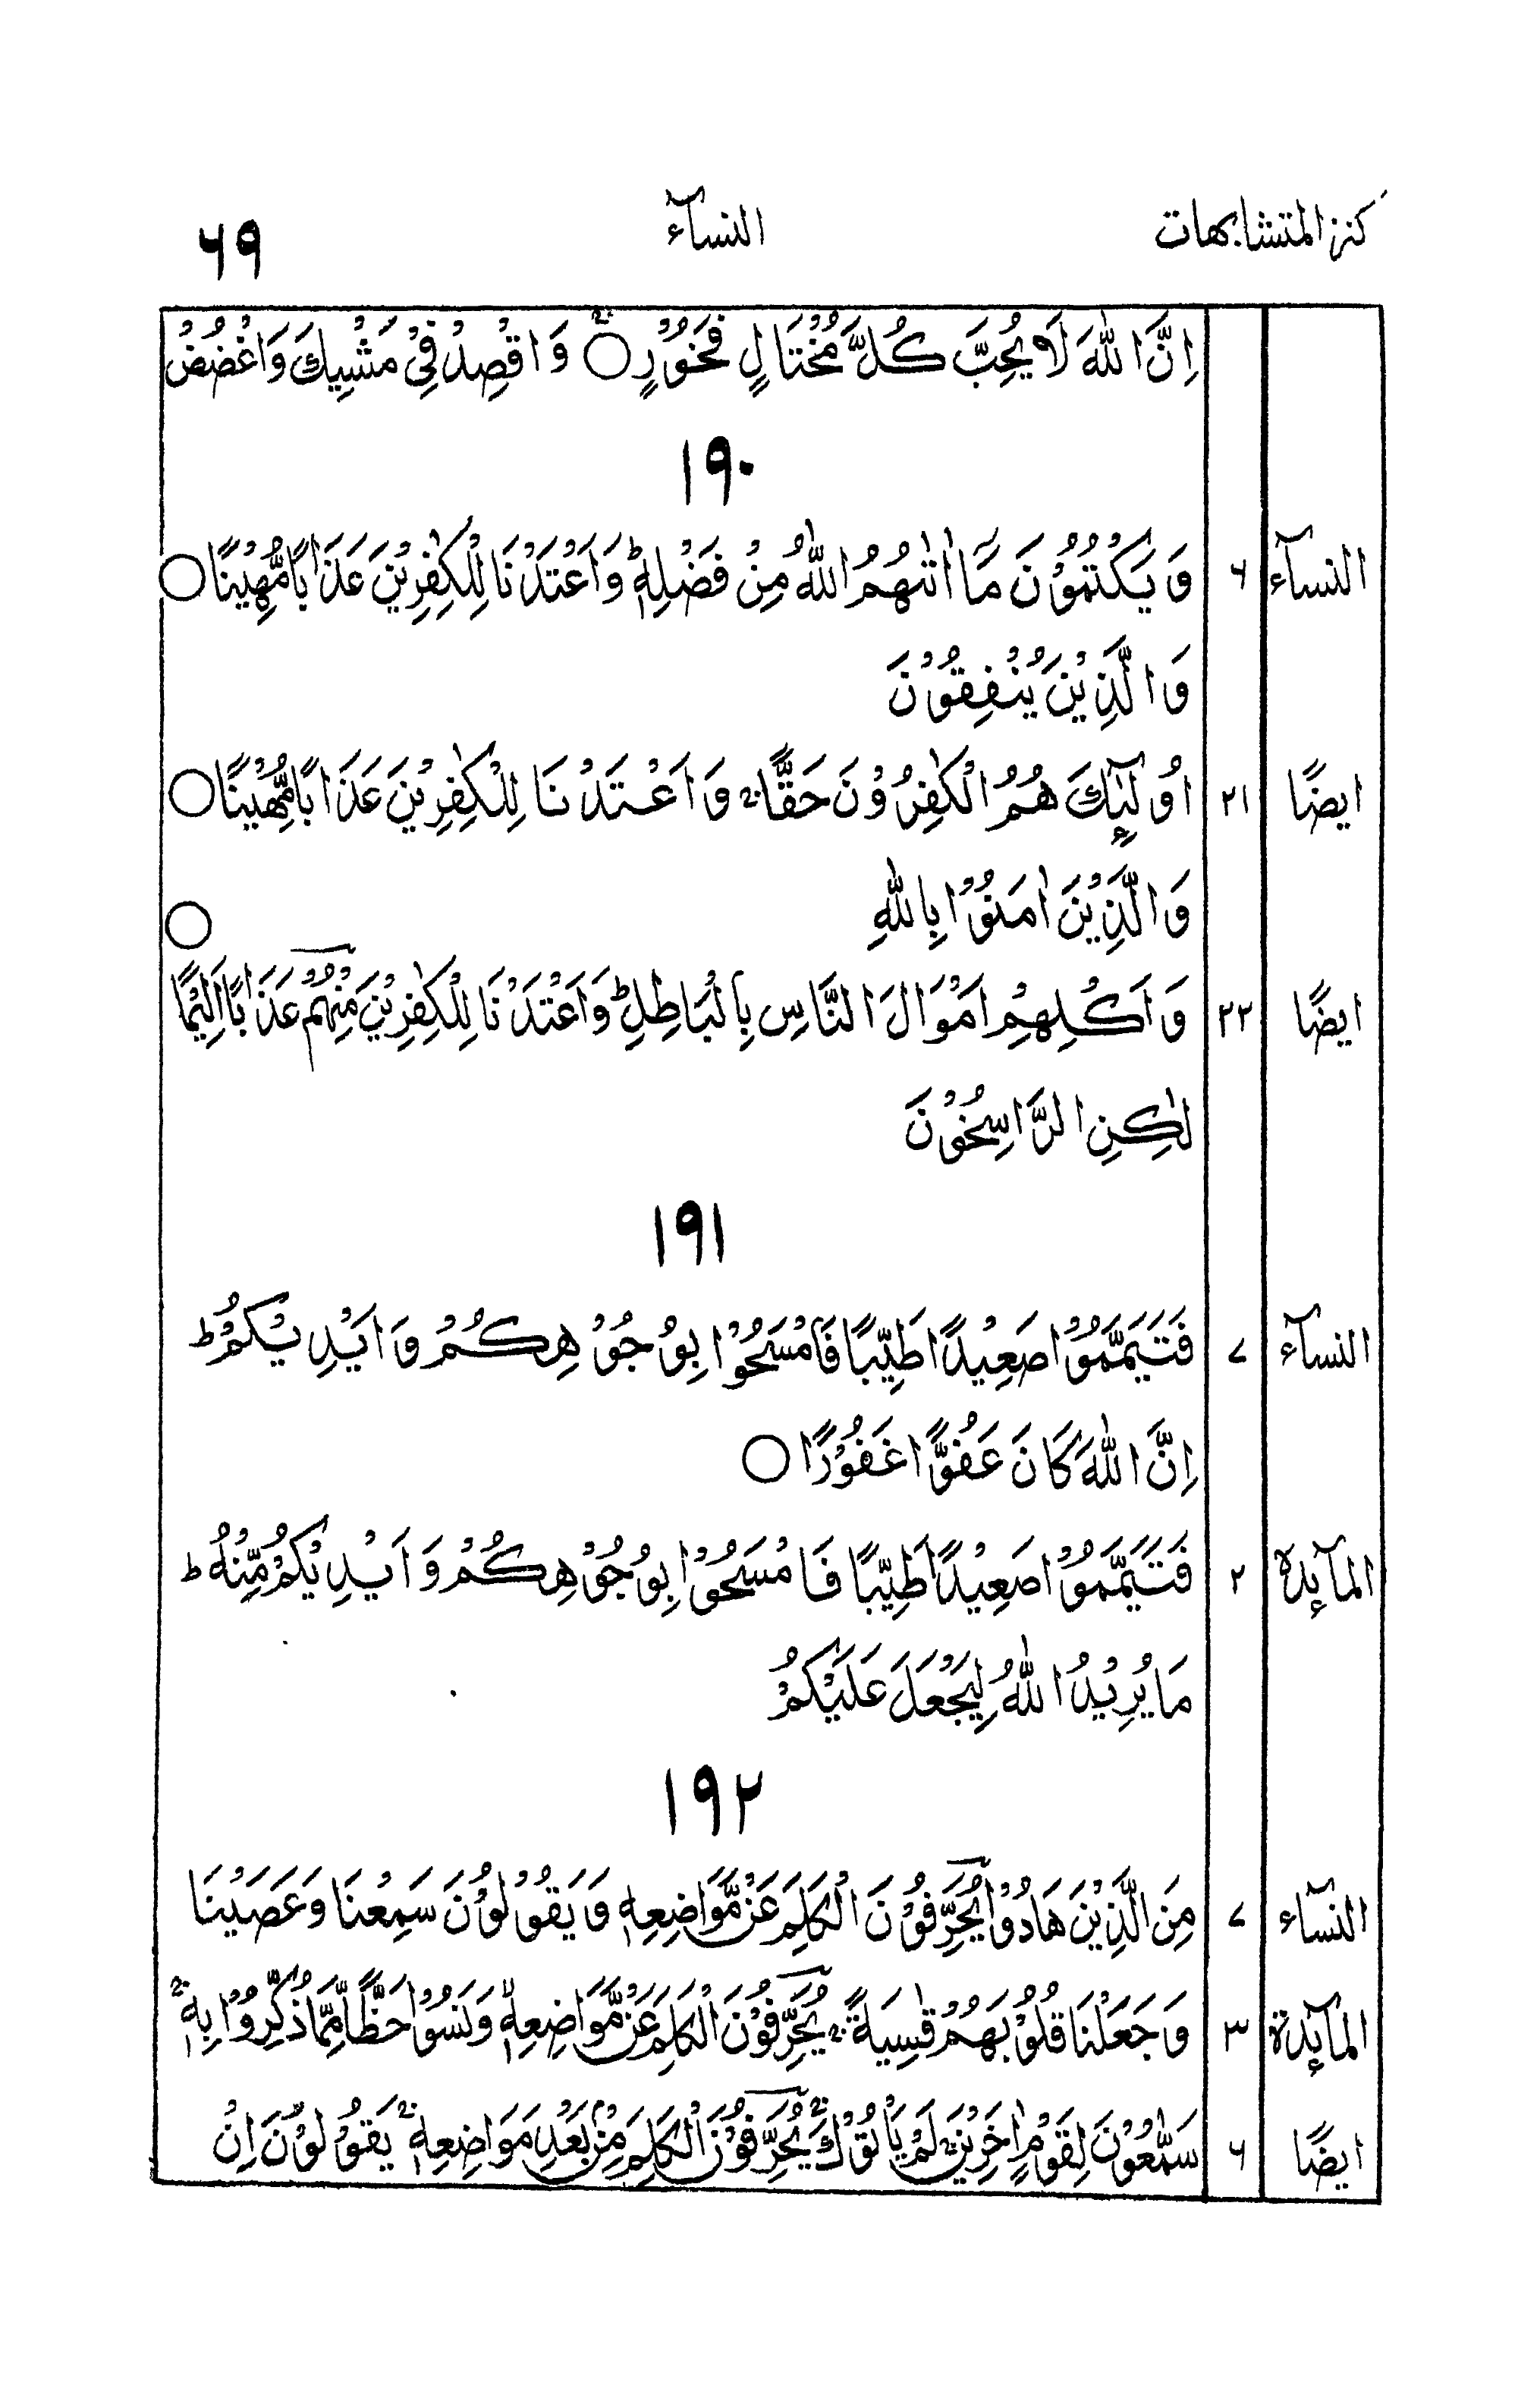 كنز المتشابهات النسآء ۶۹
اِنَّ اللّٰهَ لَا يُحِبُّ كُلَّ مُخْتَالٍ فَخُوْرٍ ○ وَاقْصِدْ فِيْ مَشْيِكَ وَاغْضُضْ
۱۹۰
النسآء ۶ وَيَكْتُمُوْنَ مَآ اٰتٰهُمُ اللّٰهُ مِنْ فَضْلِهٖ ؕ وَاَعْتَدْنَا لِلْكٰفِرِيْنَ عَذَابًا مُّهِيْنًا ○
وَالَّذِيْنَ يُنْفِقُوْنَ
ايضًا ۲۱ اُولٰٓئِكَ هُمُ الْكٰفِرُوْنَ حَقًّا ۚ وَاَعْتَدْنَا لِلْكٰفِرِيْنَ عَذَابًا مُّهِيْنًا ○
وَالَّذِيْنَ اٰمَنُوْا بِاللّٰهِ
ايضًا ۲۲ وَاَكْلِهِمْ اَمْوَالَ النَّاسِ بِالْبَاطِلِ ؕ وَاَعْتَدْنَا لِلْكٰفِرِيْنَ مِنْهُمْ عَذَابًا اَلِيْمًا ○
لٰكِنِ الرَّاسِخُوْنَ
۱۹۱
النسآء ۷ فَتَيَمَّمُوْا صَعِيْدًا طَيِّبًا فَامْسَحُوْا بِوُجُوْهِكُمْ وَاَيْدِيْكُمْ ؕ
اِنَّ اللّٰهَ كَانَ عَفُوًّا غَفُوْرًا ○
المآئدة ۲ فَتَيَمَّمُوْا صَعِيْدًا طَيِّبًا فَامْسَحُوْا بِوُجُوْهِكُمْ وَاَيْدِيْكُمْ مِّنْهُ ؕ
مَا يُرِيْدُ اللّٰهُ لِيَجْعَلَ عَلَيْكُمْ
۱۹۲
النسآء ۷ مِنَ الَّذِيْنَ هَادُوْا يُحَرِّفُوْنَ الْكَلِمَ عَنْ مَّوَاضِعِهٖ وَيَقُوْلُوْنَ سَمِعْنَا وَعَصَيْنَا
المآئدة ۳ وَجَعَلْنَا قُلُوْبَهُمْ قٰسِيَةً ۚ يُحَرِّفُوْنَ الْكَلِمَ عَنْ مَّوَاضِعِهٖ ۙ وَنَسُوْا حَظًّا مِّمَّا ذُكِّرُوْا بِهٖ ۚ
ايضًا ۶ سَمّٰعُوْنَ لِقَوْمٍ اٰخَرِيْنَ ۙ لَمْ يَاْتُوْكَ ؕ يُحَرِّفُوْنَ الْكَلِمَ مِنْۢ بَعْدِ مَوَاضِعِهٖ ۚ يَقُوْلُوْنَ اِنْ